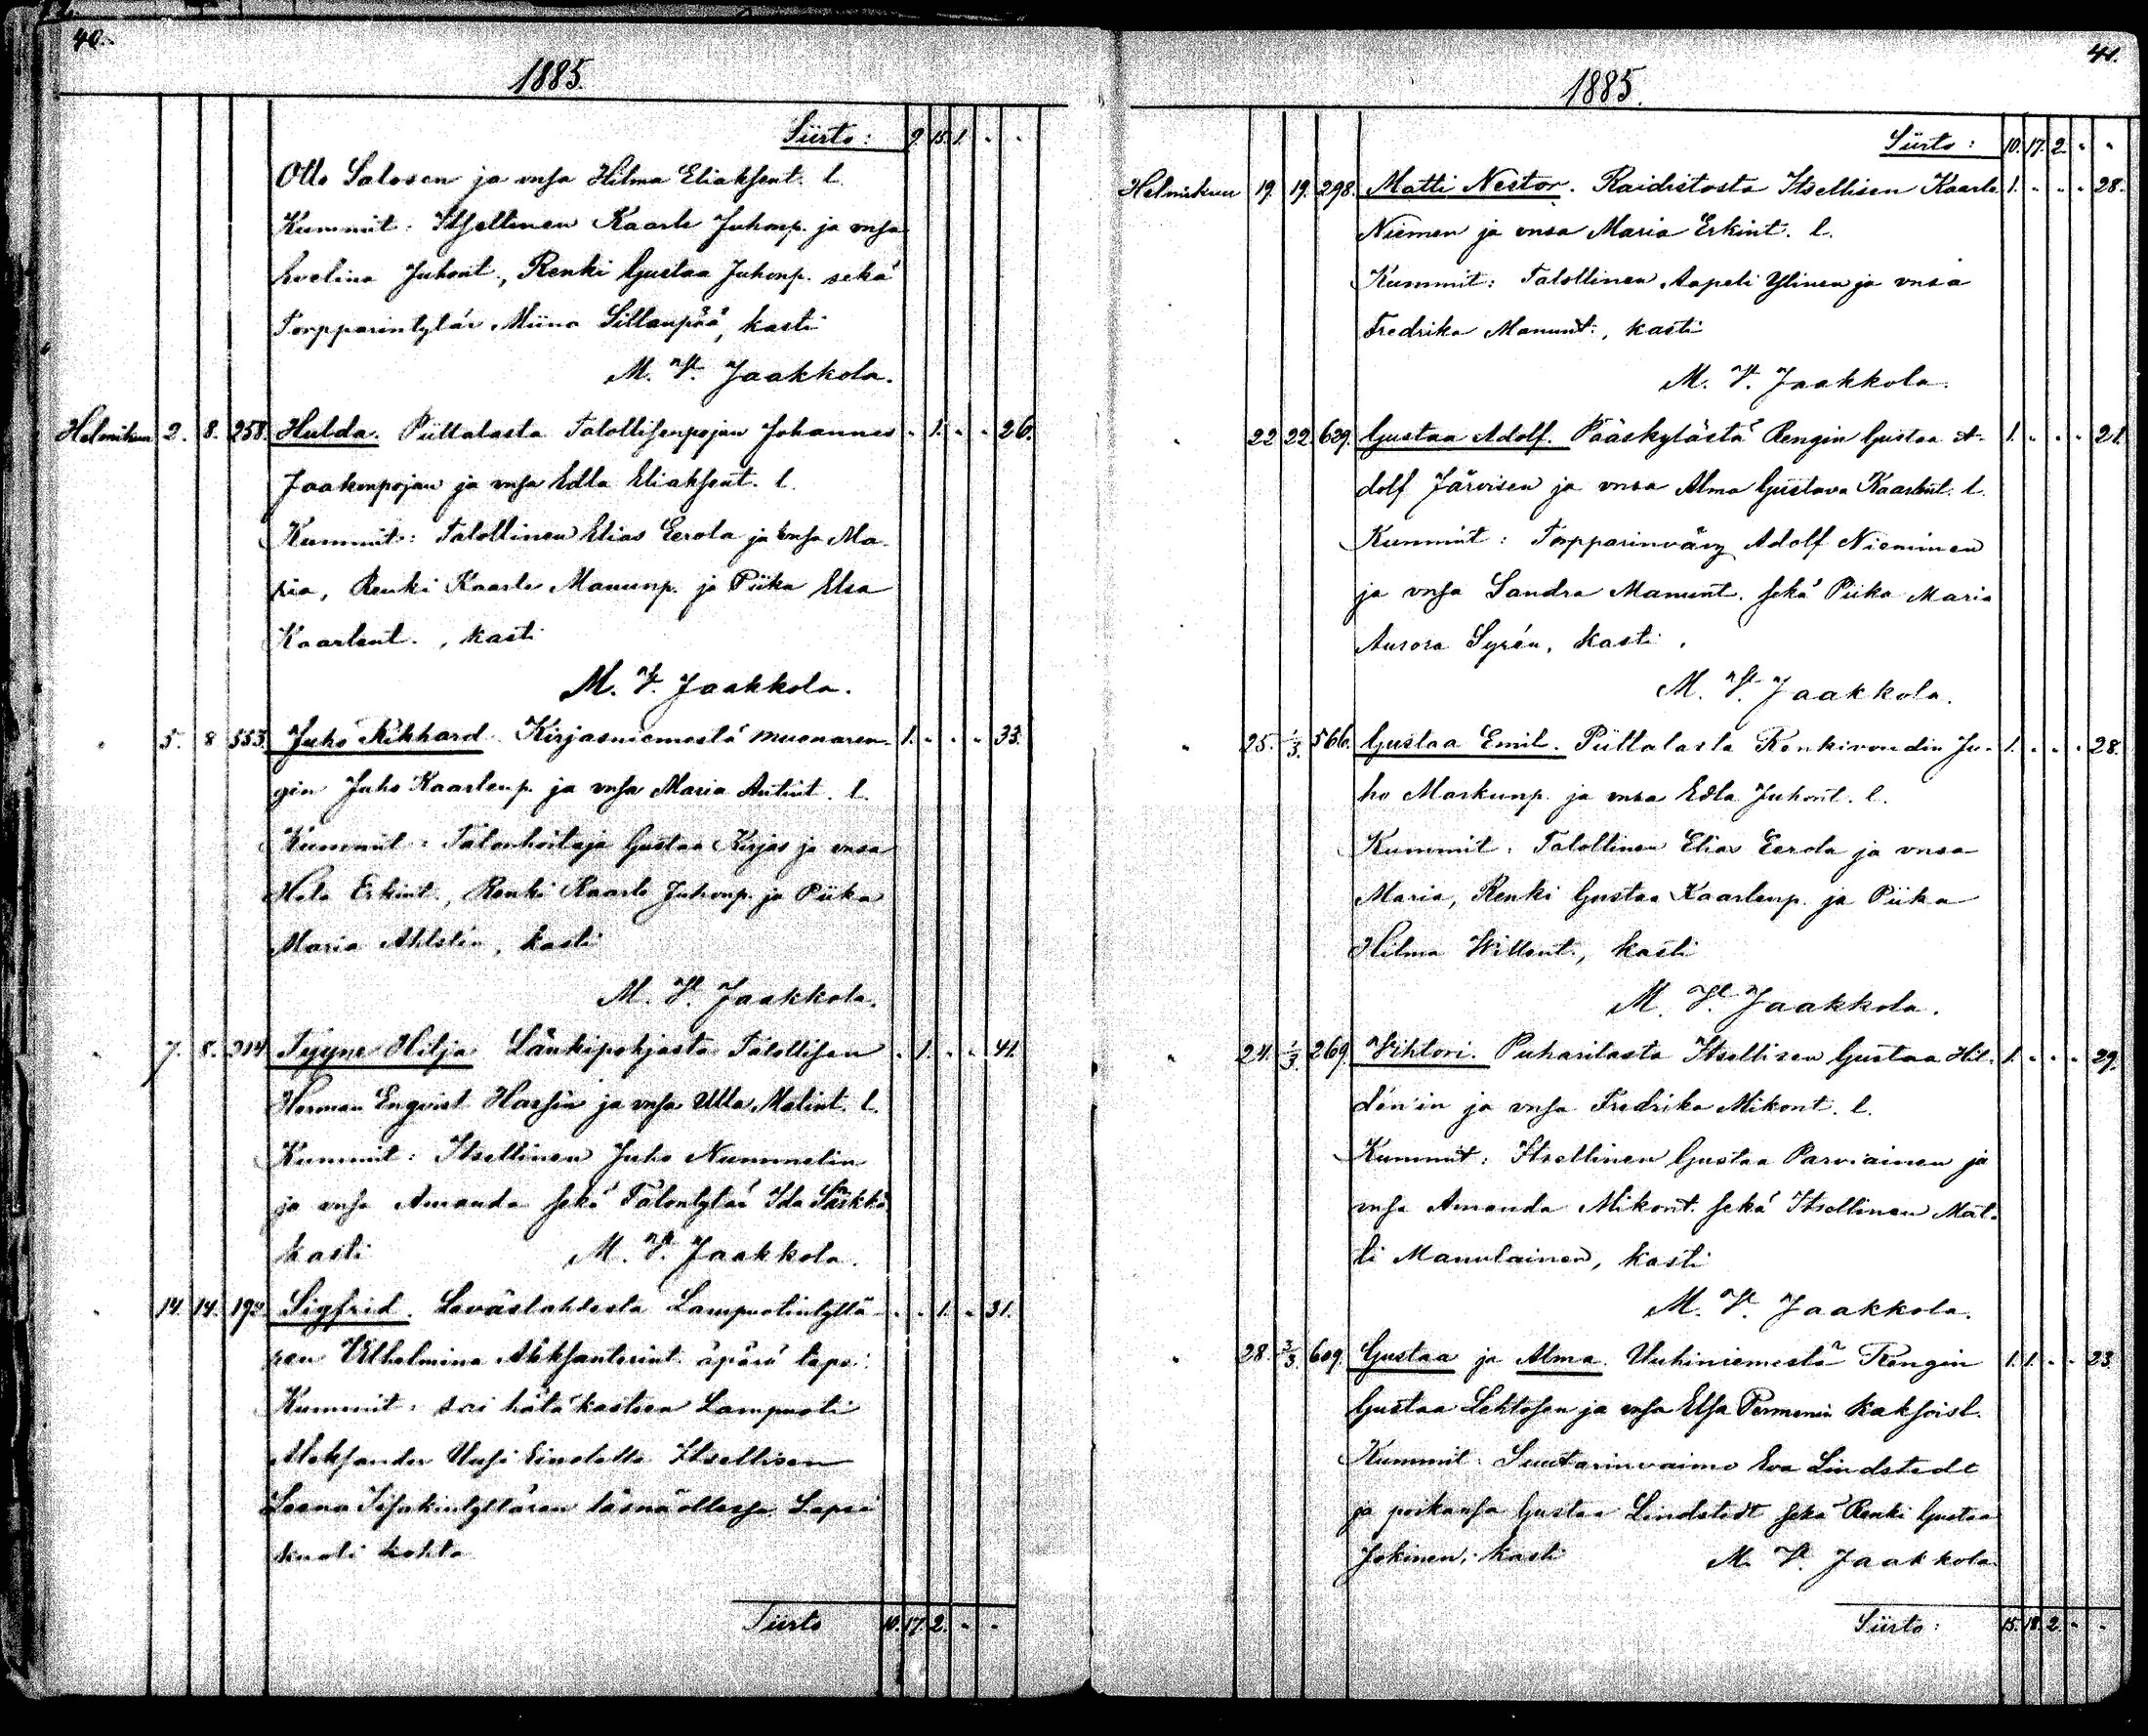 40.
1885.
Siirto: 9. 15. 1. " "
Otto Salosen ja vnsa Hilma Eliaksent. l.
Kummit: Itsellinen Kaarle Juhonp. ja vnsa
Evelina Juhont., Renki Gustaa Juhonp. sekä
Torpparintytär Miina Sillanpää, kasti
M. V. Jaakkola.
Helmikuun 2. 8. 258. Hulda. Piittalasta Talollisenpojan Johannes " 1. " " 26.
Jaakonpojan ja vnsa Edla Eliaksent. l.
Kummit: Talollinen Elias Eerola ja vnsa Ma-
ria, Renki Kaarle Manunp. ja Piika Elsa
Kaarlent., kasti
M. V. Jaakkola.
" 5. 8 553. Juho Rikhard. Kirjasniemestä muonaren- 1. " " " 33.
gin Juho Kaarlenp. ja vnsa Maria Antint. l.
Kummit: Talonhoitaja Gustaa Kirjas ja vnsa
Erkint., Renki Kaarle Juhonp. ja Piika
Maria Ahlstén, kasti
M. V. Jaakkola.
" 7. 8. 314 Tyyne Hilja Länkipohjasta Talollisen " 1. " " 41.
Herman Enqvist Hassin ja vnsa Ulla Matint. l.
Kummit: Itsellinen Juho Nummelin
ja vnsa Amanda sekä Talontytär Ida Särkkä
kasti M. V. Jaakkola.
" 14. 14. 192 Sigfrid. Leväslahdesta Lampuotintyttä- " " 1. " 31.
ren Vilhelmina Aleksanterint. äpärä laps:
Kummit: sai hätäkasteen Lampuoti
Aleksander Uusi Einolalta Itsellisen
Leena Iisakintyttären läsnäollessa. Lapsi
kuoli kohta
Siirto 10. 17. 2. " "
41.
1885.
Siirto: 10. 17. 2. " "
Helmikuun 19. 19. 298. Matti Nestor. Raidistosta Itsellisen Kaarle 1. " " " 28.
Niemen ja vnsa Maria Erkint. l.
Kummit: Talollinen Aapeli Ylinen ja vnsa
Fredrika Manunt., kasti
M. V. Jaakkola.
" 22 22. 629. Gustaa Adolf. Pääskylästä Rengin Gustaa A- 1. " " " 21.
dolf Järvisen ja vnsa Alma Gustava Kaarlent. l.
Kummit: Torpparinvävy Adolf Nieminen
ja vnsa Sandra Manunt. sekä Piika Maria
Aurora Syrén, kasti.
M. V. Jaakkola.
" 25. 1/3. 566. Gustaa Emil. Piittalasta Renkivoudin Ju- 1. " " " 28.
ho Markunp. ja vnsa Edla Juhont. l.
Kummit: Talollinen Elias Eerola ja vnsa
Maria, Renki Gustaa Kaarlenp. ja Piika
Hilma Willent., kasti
M. V. Jaakkola.
" 24. 1/3. 269. Vihtori. Puharilasta Itsellisen Gustaa Hil- 1. " " " 29.
dén'in ja vnsa Fredrika Mikont. l.
Kummit: Itsellinen Gustaa Parviainen ja
vnsa Amanda Mikont. sekä Itsellinen Mat-
ti Manulainen, kasti
M. V. Jaakkola.
" 28. 3/3. 609. Gustaa ja Alma. Uuhiniemestä Rengin 1. 1. " " 23.
Gustaa Lehtosen ja vnsa Elsa Permenin kaksoisl.
Kummit: Suutarinvaimo Eva Lindstedt
ja poikansa Gustaa Lindstedt sekä Renki Gustaa
Jokinen, kasti M. V. Jaakkola
Siirto: 15. 18. 2. " "